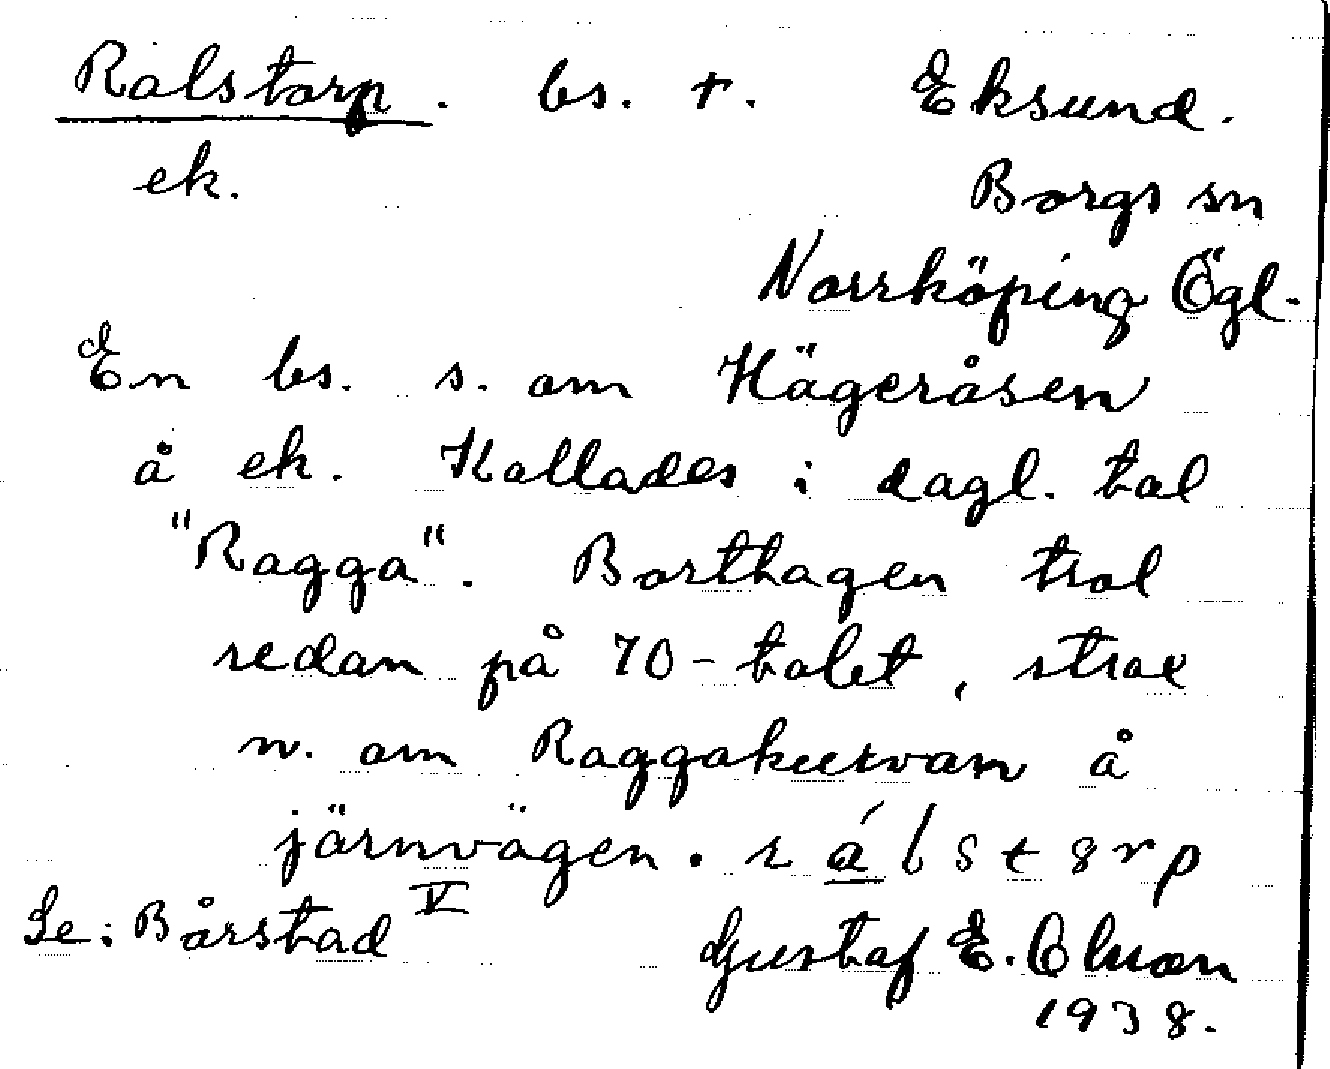 Ralstorp. bs. †. Eksund.
ek. Borgs sn
Norrköping Ögl.
En bs. s. om Hägeråsen
å ek. Kallades i dagl. tal
"Ragga". Borttagen trol
redan på 70-talet, strax
n. om Raggakurvan å
järnvägen.
Se: Bårstad V Gustaf E. Olson
1938.